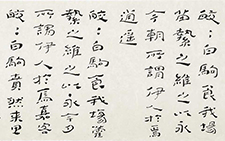 皎：白駒食我場
苗縶之維之以永
今朝所謂伊人於焉
逍遥
皎：白駒食我場藿
縶之維之以永今夕
所謂伊人於焉嘉客
皎：白駒賁然來思